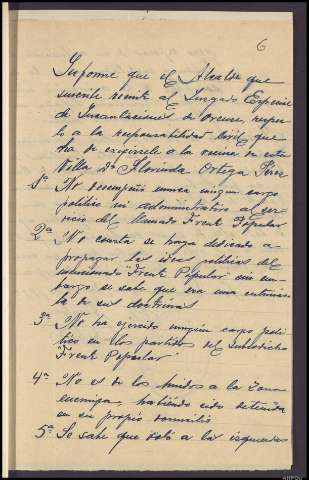 6
Informe que el Alcalde que
suscribe remite al Juzgado Especial
de Incautaciones de Orense, respec
to a la responsabilidad civil que
ha de exigirsele a la vecina de esta
Villa Dª Florinda Ortega Pérez
1ª No desempeñó nunca ningun cargo
politico ni administrativo al ser-
vicio del llamado Frente Popular
2ª No consta se haya dedicado a
propagar las ideas politicas del
mencionado "Frente Popular" sin em-
bargo se sabe que era una entusias
ta de sus doctrinas
3ª No ha ejercido ningún cargo poli
tico en los partidos del susodicho
"Frente Popular"
4ª No es de los huidos a la Zona
enemiga, habiendo sido detenida
en su propio domicilio
5ª Se sabe que votó a las izquierdas
AHPOU